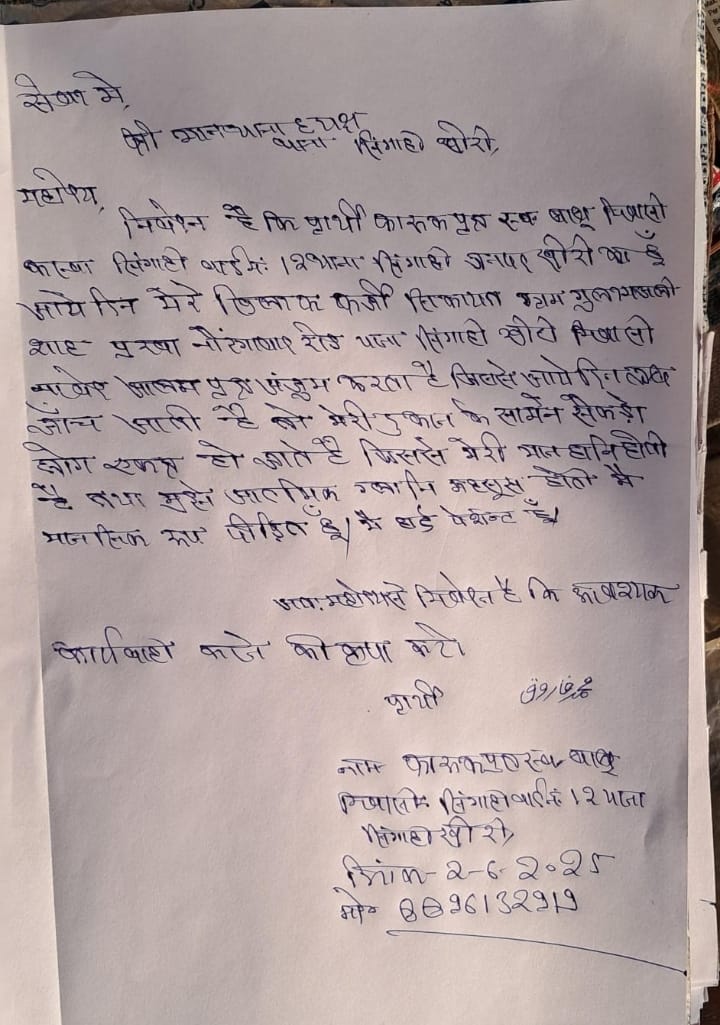 सेवा मे,
श्री मान थानाध्यक्ष
थाना सिंगाही खीरी,
महोदय,
निवेदन है कि प्रार्थी फारूक पुत्र स्व० बाबू निवासी
कस्बा सिंगाही वार्ड नं: 12 थाना सिंगाही जनपद खीरी का हूँ
आये दिन मेरे खिलाफ फर्जी सिकायत
शाह पुरवा नौरंगाबाद रोड थाना सिंगाही खीरी निवासी
आलम पुत्र अंजुम करता है जिससे आये दिन
जाँच आती है तो मेरी दुकान के सामने सैकड़ो
लोग एकत्र हो जाते है जिससे मेरी मान हानि होती
है तथा मुझे आत्मिक ग्लानि महसूस होती मै
मानसिक रूप पीड़ित हूँ। मै हार्ट पेशेन्ट हूँ।
अतः महोदय से निवेदन है कि आवश्यक
कार्यवाही करने की कृपा करे।
प्रार्थी
نام फारूक पुत्र स्व० बाबू
निवासी सिंगाही वार्ड नं: 12 थाना
सिंगाही खीरी,
दिनांक - 2-6-2025
मो० 8896132919